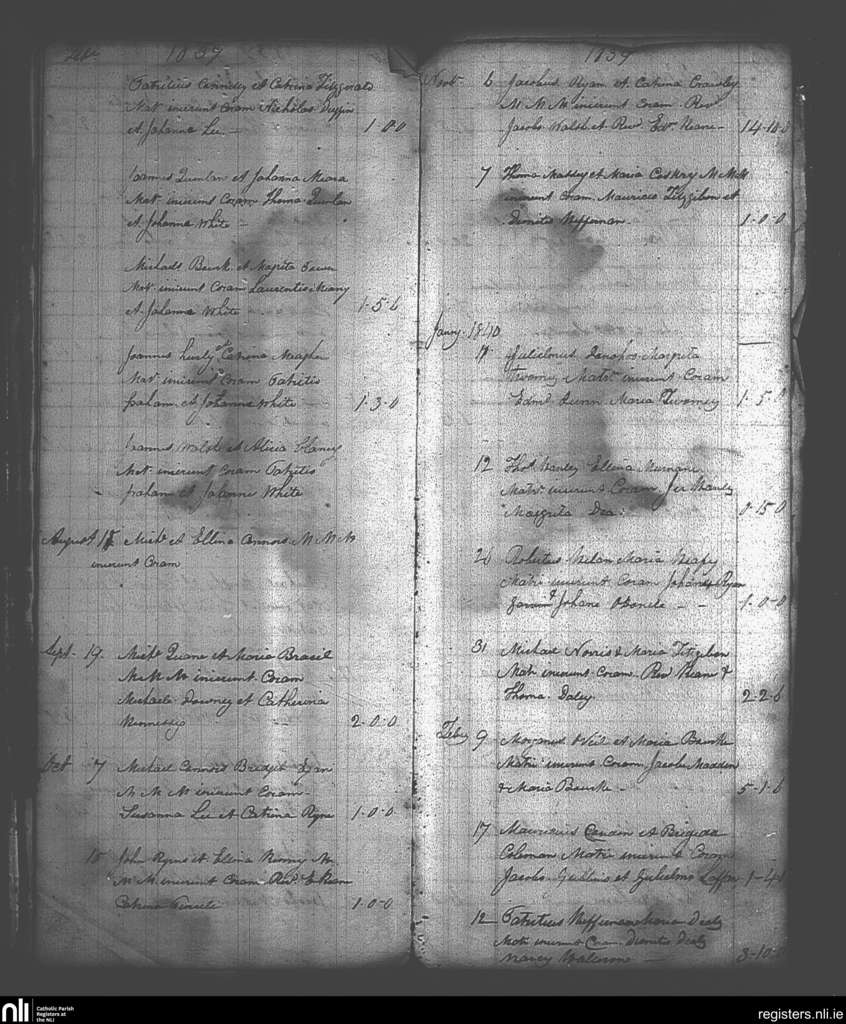 Feb 1839
Patritius Connelly et Catrina Fitzgerald
Mat inierunt Coram Nicholas Duggin
et Johanna Lee — 1-0-0
Joannes Quinlan et Johanna Meara
Mat inierunt Coram Thoma Quinlan
et Johanna White —
Michaels Bourk et Magrita
Mat inierunt Coram Laurentis Meany
et Johanna White 1-5-6
Joannes et Catrina Meagher
Mat inierunt Coram Patritis
Graham et Johanna White 1-3-0
Joannes Walsh et Alicia Clancy
Mat inierunt Coram Patritis
Graham et Johanna White
August 18 Michl et Ellina Connors M M M
inierunt Coram
Sept 19 Michl Quane et Maria Brasil
M M M inierunt Coram
Michaele Downey et Catherina
Hennessy 2-0-0
Oct 7 Michael Connors Bridget Ryan
M M M inierunt Coram
Susanna Lee et Catrina Ryne 1-0-0
18 John Ryns et Ellina
M M inierunt Coram Revd
Catrina 1-0-0
1839
Novr 6 Jacobus Ryan et Catrina Crawley
M M M inierunt Coram Rev
Jacobo Walsh et Revd Edr Keane - 14-10-0
7 Thoma Massey et Maria Caskry M M M
inierunt Coram Mauricio Fitzgibon et
Dionitis Heffernan 1-0-0
Janry 1840
11 Gulielmus Margrita
Twomey Matr inierunt Coram
Edmd Quinn Maria Twomey 1-5-0
12 Thos Hanley Ellina Murnane
Matr inierunt Coram Jer Hanley
Magrita Dea 0-15-0
26 Robertus Nelan Maria Neafy
Matri inierunt Coram Johanes Ryan
& Johane - - 1-0-0
31 Michael Norris & Maria Fitzgibon
Mat inierunt Coram Revd Keane &
Thoma Daley 2-2-6
Feby 9 Morganus ONeil et Maria Bourke
Matri inierunt Coram Jacobo Madden
& Maria Bourke - 5-1-6
17 Mauricius et Brigida
Coleman Matri inierunt Coram
Jacobo et Gulielmo
12 Patritius Heffernan Maria Dealy
Matr inierunt Coram Dionitis Dealy
Nancy — 3-10-0
nli Catholic Parish
Registers at
the NLI
registers.nli.ie